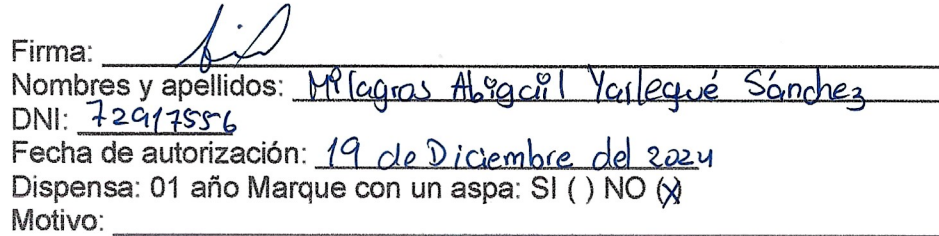 Firma:
Nombres y apellidos: Milagros Abigail Yarlequé Sánchez
DNI: 72917556
Fecha de autorización: 19 de Diciembre del 2024
Dispensa: 01 año Marque con un aspa: SI ( ) NO (X)
Motivo: